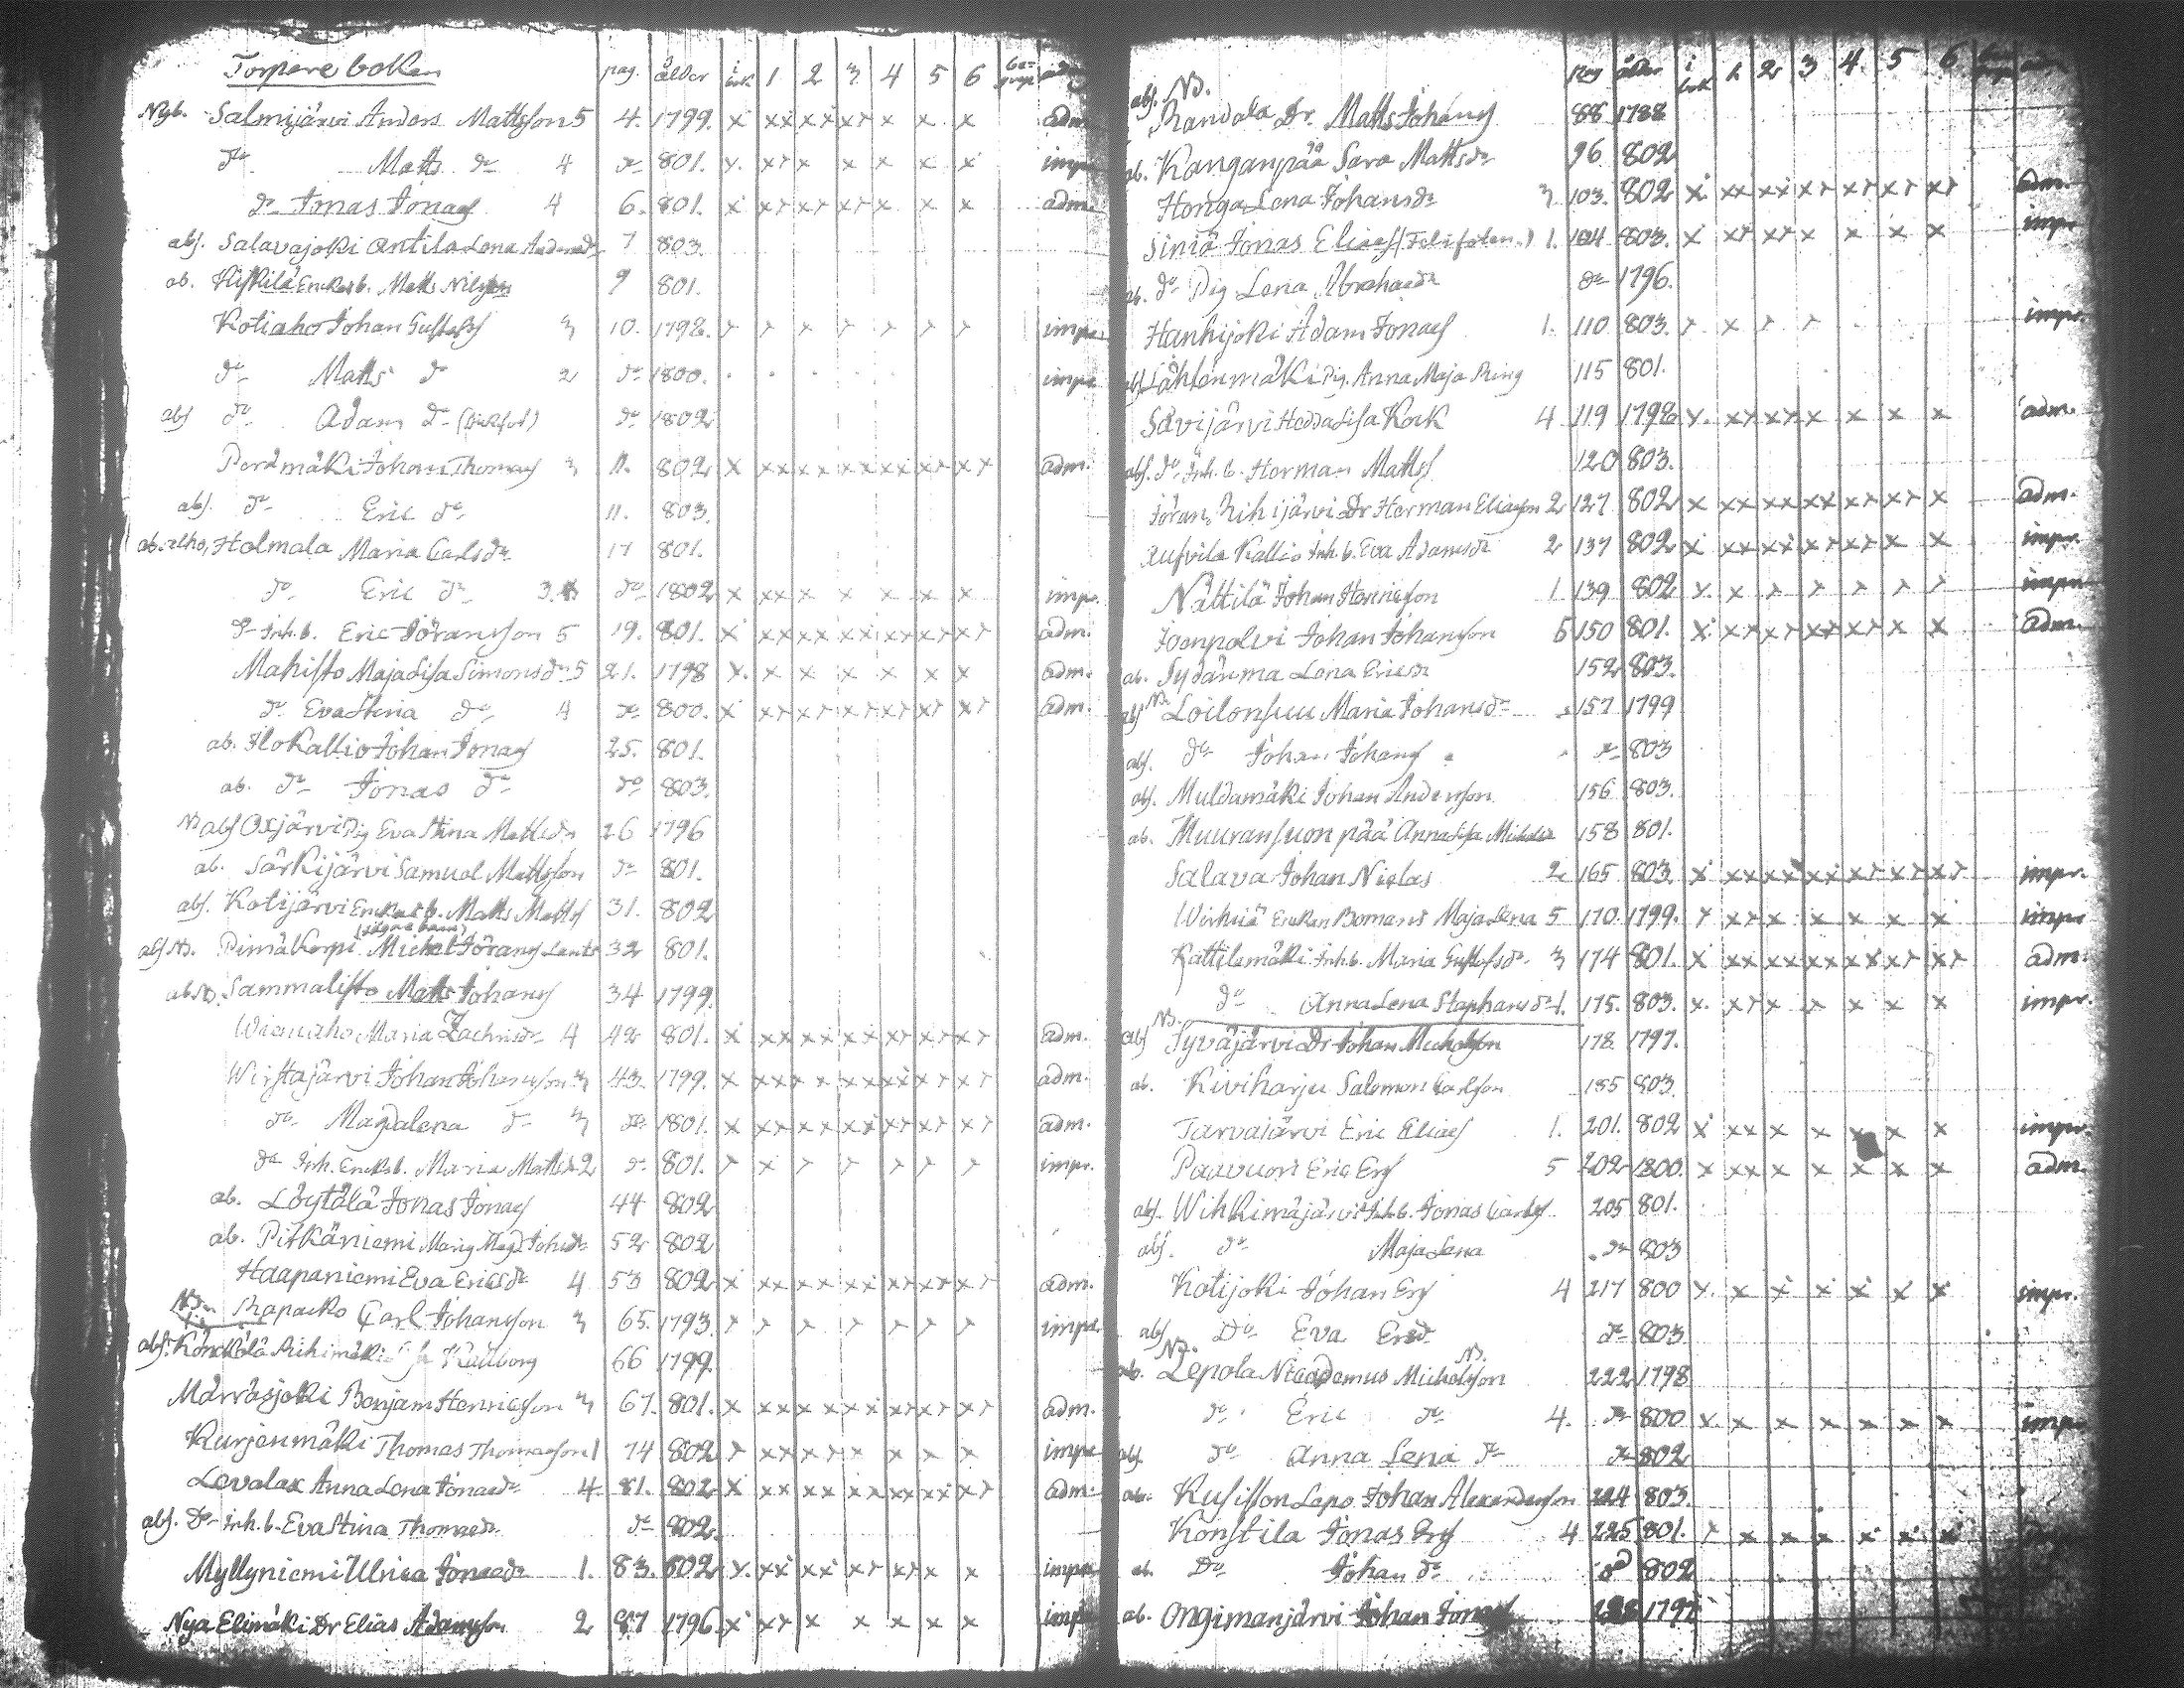 Torpare boken pag. ålder i bok 1 2 3 4 5 6 be- grep adm
Nyb. Salmijärvi Anders Mattsson 5 4. 1799. x xx xx xx x x x adm
do Matts do 4 do 801. x. xxx x x x x impr
do Jonas Jonass 4 6. 801. x xx xx xx x x x adm.
abs. Salavajoki Antila Lena Andersdr 7 803.
ab. Kiskilä Matts Nilsson 9 801.
Kotiaho Johan Gustafss 3 10. 1798. x x x x x x x impr
do Matts do 2 do 1800. impr
abs do Adam do 1802
Perämäki Johan Thomass 3 11. 802 x xx xx xx xx xx xx adm.
abs. do Eric do 11. 803.
ab. alho, Holmala Maria Carlsdr 17 801.
do Eric do 3. do 1802 x xx x x x x x impr.
do Inh. b. Eric Göransson 5 19. 801. x xx xx xx xx xx xx adm.
Mahisto Maja Lisa Simonsdr 5 21. 1798 x. x x x x x x adm.
do Eva Stina do 4 do 800. x xx xx xx xx xx xx adm
ab. Ilokallio Johan Jonass 25. 801.
ab. do Jonas do do 803.
NB abs Oxjärvi Pig Eva Stina Mattsdr 26 1796
ab. Särkijärvi Samuel Mattsson do 801.
abs. Kotijärvi Matts Matts 31. 802
abs NB. Pimäkorpi Michel Görans 32 801.
abs NB. Sammalisto Matts Johans 34 1799.
Maria Zachrisdr 4 42 801. x xx xx xx xx xx xx adm.
Wirstajärvi Johan Johansson 3 43. 1799. x xx xx xx xx xx xx adm.
do Magdalena do 3 do 1801. x xx xx xx xx xx xx adm.
do Inh. Maria Mattsdr 2 do 801. x x x x x x x impr.
ab. Löytälä Jonas Jonass 44 802
ab. Pitkäniemi Maria Magd Johsdr 52 802
Haapaniemi Eva Ericsdr 4 53 802 x xx xx xx xx xx xx adm.
NB. Rapacko Carl Johansson 3 65. 1793. x x x x x x x impr
abs. Rihimäki Källborg 66 1799.
Märräsjoki Benjam Henricsson 3 67. 801. x xx xx xx xx xx xx adm.
Kurjenmäki Thomas Thomasson 1 74 802 x xx xx x x x x impr
Levalax Anna Lena Jonasdr 4 81. 802 x xx xx xx xx xx xx adm.
abs. Do Inh. b. Eva Stina Thomasdr do 802.
Myllyniemi Ulrica Jonasdr 1. 83. 802 x. xx xx xx xx x x impr
Nya Elimäki Dr Elias Adamsson 2 87 1796. x xx x x x x x impr
pag ålder i bok 1. 2 3 4. 5 6
abs. NB. Randala Dr. Matts Johans 88 1788
ab. Kanganpää Sara Mattsdr 96 802
Honga Lena Johansdr 3 103. 802 x xx xx xx xx xx xx adm.
Siniä Jonas Eliass 1. 104 803. x xx xx x x x x impr
ab. do Pig Lena Abrahasdr do 1796.
Hanhijoki Adam Jonass 1. 110 803. x x x x impr.
abs Lähtenmäki Pig. Anna Maja Ring 115 801.
Savijärvi Hedda Lisa Kock 4 119 1798 x. xx xx x x x x adm.
abs. do Inh. b. Herman Matts 120 803.
Göran, Rihijärvi Dr Herman Eliasson 2 127 802 x xx xx xx xx xx x adm.
Kallio Inh. b. Eva Adamsdr 2 137 802 x xx xx xx xx x x impr.
Nättilä Johan Henricsson 1 139 802 x. x x x x x x impr
Joenpolvi Johan Johansson 5 150 801. x xx xx xx xx x x adm
ab. Sydänma Lena Ericsdr 152 803.
abs NB. Loilonsuu Maria Johansdr 157 1799
abs. do Johan Johans do 803
abs. Muldamäki Johan Andersson 156 803.
ab. Muuransuon pää Anna Lisa Michelsdr 158 801.
Salava Johan Niclas 2 165 803. x xx xx xx xx xx xx impr.
Wirhiä Enckan Bomans Maja Lena 5 170. 1799. x xx x x x x x impr
Kattilamäki Inh. b. Maria Gustafsdr 3 174 801. x xx xx xx xx xx xx adm.
do Anna Lena Staphansdr 1. 175. 803. x. xx x x x x x impr.
NB. abs Syväjärvi Dr Johan Michelsson 178. 1797.
ab. Kiviharju Salomon Carlsson 185 803.
Tarvajärvi Eric Eliass 1. 201. 802 x xx x x x x x impr.
Paavuori Eric Ers 5 202 1800. x xx x x x x x adm.
abs. Wihkimäjärvi Inh. b. Jonas Carls 205 801.
abs. do Maja Lena do 803
Kotijoki Johan Ers 4 217 800 x. x x x x x x impr.
abs Do Eva Ersdr do 803
NB. NB.
ab. Lepola Nicodemus Michelsson 222 1798
do Eric do 4. do 800 x. x x x x x x impr
abs. do Anna Lena do do 802
ab. Kusisson Lepo Johan Alexandersson 224 803.
Konstila Jonas Ers 4 225 801. x x x x x x x
ab. Do Johan do do 802
ab. Ongimanjärvi Johan Jonass